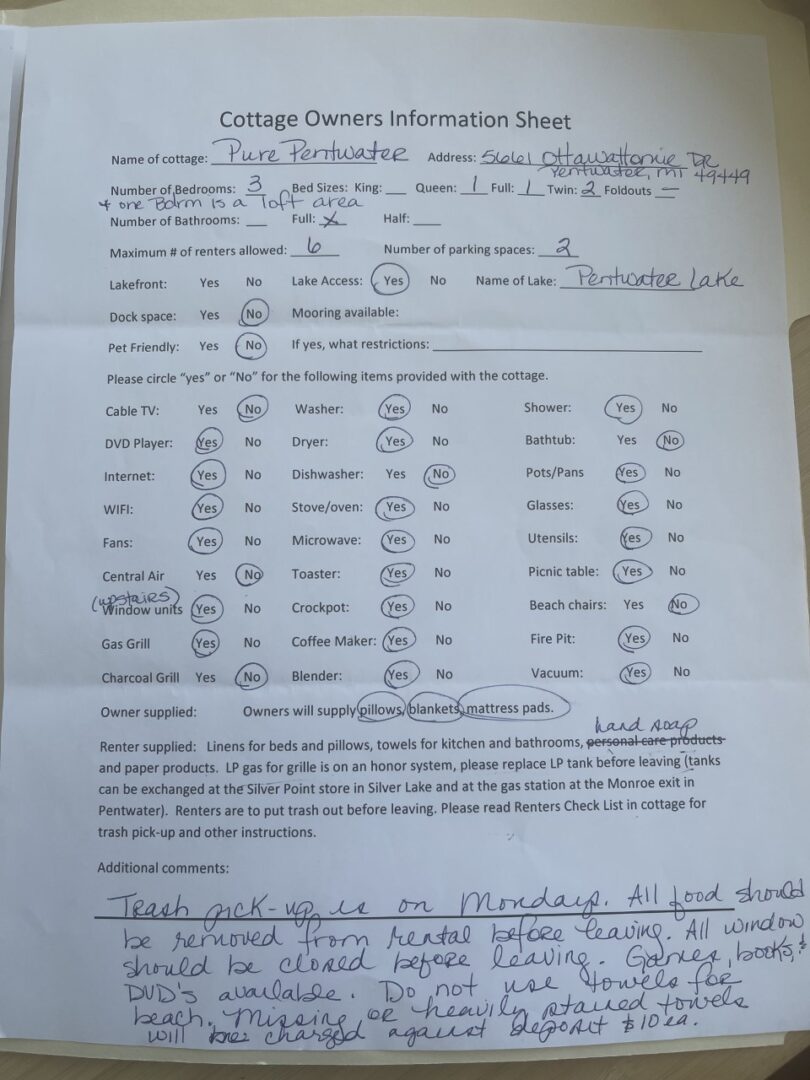 Cottage Owners Information Sheet
Name of cottage: Pure Pentwater Address: 5661 Ottawattamie DR
Pentwater, MI 49449
Number of Bedrooms: 3 Bed Sizes: King: __ Queen: 1 Full: 1 Twin: 2 Foldouts —
* one Bdrm is a loft area
Number of Bathrooms: __ Full: X Half: __
Maximum # of renters allowed: 6 Number of parking spaces: 2
Lakefront: Yes No Lake Access: Yes No Name of Lake: Pentwater Lake
Dock space: Yes No Mooring available:
Pet Friendly: Yes No If yes, what restrictions:
Please circle “yes” or “No” for the following items provided with the cottage.
Cable TV: Yes No Washer: Yes No Shower: Yes No
DVD Player: Yes No Dryer: Yes No Bathtub: Yes No
Internet: Yes No Dishwasher: Yes No Pots/Pans Yes No
WIFI: Yes No Stove/oven: Yes No Glasses: Yes No
Fans: Yes No Microwave: Yes No Utensils: Yes No
Central Air Yes No Toaster: Yes No Picnic table: Yes No
(upstairs)
Window units Yes No Crockpot: Yes No Beach chairs: Yes No
Gas Grill Yes No Coffee Maker: Yes No Fire Pit: Yes No
Charcoal Grill Yes No Blender: Yes No Vacuum: Yes No
Owner supplied: Owners will supply pillows, blankets, mattress pads.
hand soap
Renter supplied: Linens for beds and pillows, towels for kitchen and bathrooms, personal care products
and paper products. LP gas for grille is on an honor system, please replace LP tank before leaving (tanks
can be exchanged at the Silver Point store in Silver Lake and at the gas station at the Monroe exit in
Pentwater). Renters are to put trash out before leaving. Please read Renters Check List in cottage for
trash pick-up and other instructions.
Additional comments:
Trash pick-up is on Mondays. All food should
be removed from rental before leaving. All window
should be closed before leaving. Games, books, &
DVD's available. Do not use towels for
beach. Missing or heavily stained towels
will be charged against deposit $10 ea.